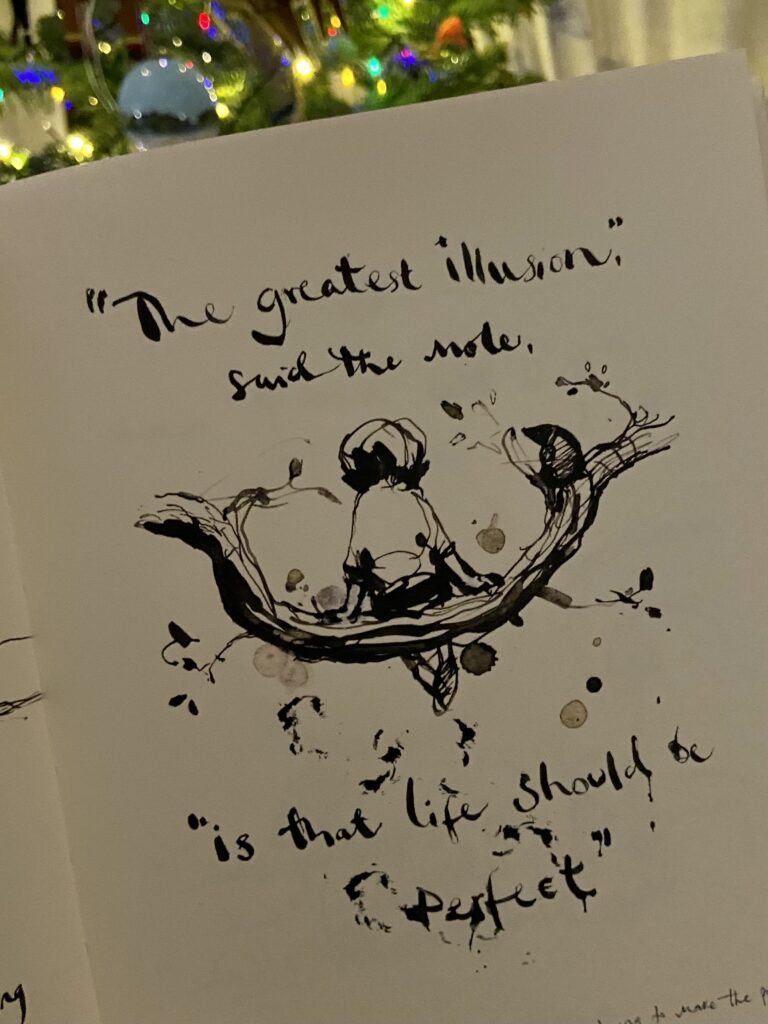 "The greatest illusion,"
said the mole,
"is that life should be
perfect"
to make the